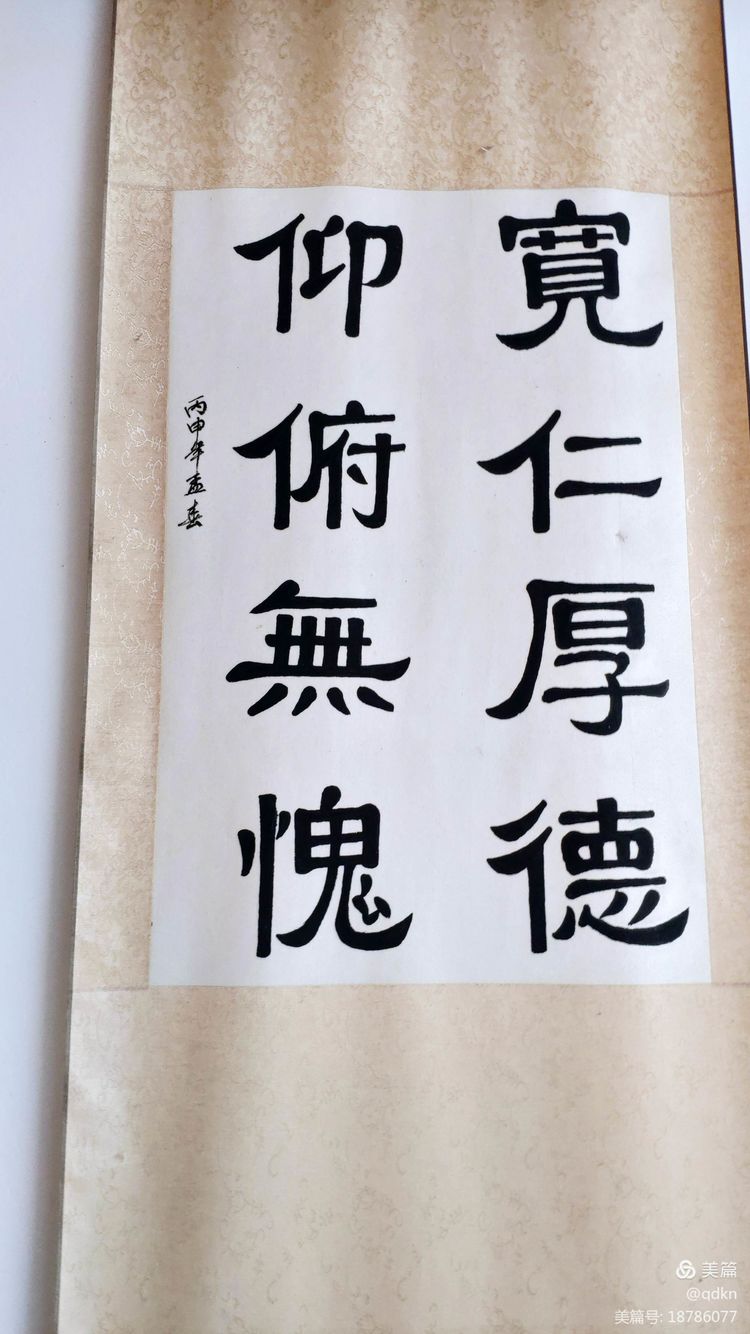 寬仁厚德
仰俯無愧
丙申年孟春
美篇
@qdkn
美篇号: 18786077